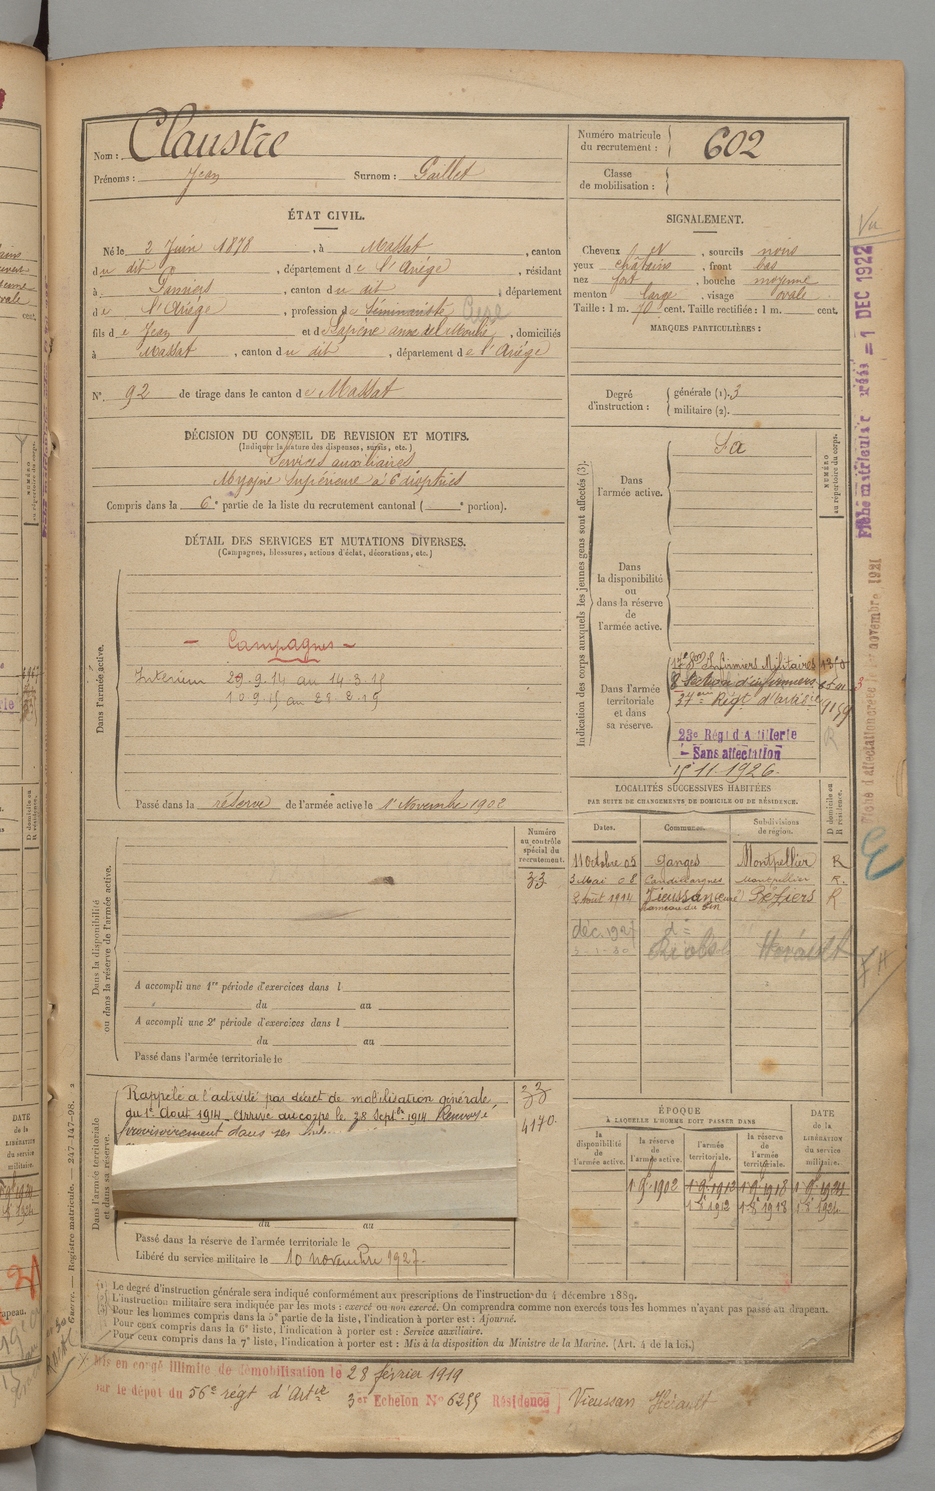 Nom : Claustre
Prénoms : Jean Surnom : Gaillet
Numéro matricule du recrutement : 602
Classe de mobilisation :
ÉTAT CIVIL.
Né le 2 Juin 1878, à Massat, canton
du dit, département de l'Ariége, résidant
à Pamiers, canton du dit département
de l'Ariége, profession de Séminariste
fils de Jean et de domiciliés
à Massat, canton du dit, département de l'Ariége
N° 92 de tirage dans le canton de Massat
SIGNALEMENT.
Cheveux N, sourcils noirs
yeux châtains, front bas
nez fort, bouche moyenne
menton large, visage ovale.
Taille : 1 m. 70 cent. Taille rectifiée : 1 m. cent.
MARQUES PARTICULIÈRES :
Degré d'instruction : générale (1). 3
militaire (2).
DÉCISION DU CONSEIL DE REVISION ET MOTIFS.
(Indiquer la nature des dispenses, sursis, etc.)
Services auxiliaires
Myopie supérieure à 6 dioptries
Compris dans la 6e partie de la liste du recrutement cantonal ( e portion).
DÉTAIL DES SERVICES ET MUTATIONS DIVERSES.
(Campagnes, blessures, actions d'éclat, décorations, etc.)
Dans l'armée active.
– Campagnes –
Intérieur 29.9.14 au 14.3.15
10.9.15 au 28.2.19
Passé dans la réserve de l'armée active le 1er Novembre 1902
Indication des corps auxquels les jeunes gens sont affectés (3).
NUMÉRO au répertoire du corps.
Dans l'armée active.
S a
Dans la disponibilité ou dans la réserve de l'armée active.
Dans l'armée territoriale et dans sa réserve.
17e Son Infirmiers Militaires
Section d'infirmiers
37eme Régt d'artie
23e Régt d'Artillerie
– Sans affectation
15.11.1926.
LOCALITÉS SUCCESSIVES HABITÉES
PAR SUITE DE CHANGEMENTS DE DOMICILE OU DE RÉSIDENCE.
Dates. Communes. Subdivisions de région. D domicile ou R résidence.
11 Octobre 05 Ganges Montpellier R
3 Mai 08 Candillargues Montpellier R.
2 Août 1914 Vieussan Béziers R
déc. 1927
Hérault
Dans la disponibilité ou dans la réserve de l'armée active.
Numéro au contrôle spécial du recrutement.
33
A accompli une 1re période d'exercices dans l
du au
A accompli une 2e période d'exercices dans l
du au
Passé dans l'armée territoriale le
Dans l'armée territoriale et dans sa réserve.
Rappelé à l'activité par décret de mobilisation générale
du 1er Aout 1914 – Arrivé au corps le 28 Septbre 1914 Renvoyé
provisoirement dans ses
33
4170.
du au
Passé dans la réserve de l'armée territoriale le
Libéré du service militaire le 10 novembre 1927.
ÉPOQUE
À LAQUELLE L'HOMME DOIT PASSER DANS
la disponibilité de l'armée active.
la réserve de l'armée active.
l'armée territoriale.
la réserve de l'armée territoriale.
DATE de la LIBÉRATION du service militaire.
1.9.1902 1.9.1912 1.9.1918 1.9.1924
1.8.1912 1.8.1918 1.8.1924
Le degré d'instruction générale sera indiqué conformément aux prescriptions de l'instruction du 4 décembre 1889.
L'instruction militaire sera indiquée par les mots : exercé ou non exercé. On comprendra comme non exercés tous les hommes n'ayant pas passé au drapeau.
Pour les hommes compris dans la 5e partie de la liste, l'indication à porter est : Ajourné.
Pour ceux compris dans la 6e liste, l'indication à porter est : Service auxiliaire.
Pour ceux compris dans la 7e liste, l'indication à porter est : Mis à la disposition du Ministre de la Marine. (Art. 4 de la loi.)
Mis en congé illimité de démobilisation le 28 février 1919
par le dépôt du 56e régt d'Artie 3er Echelon No 6255 Résidence Vieussan Hérault
Guerre. — Registre matricule. — 247-147-98.
Vu
Fiche matriculaire = 1 DEC 1922